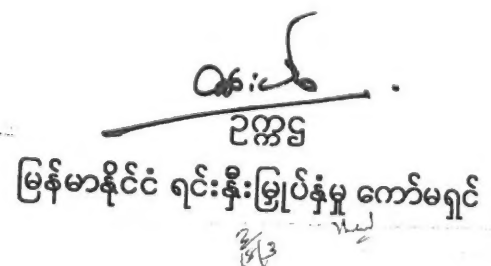 ဥက္ကဋ္ဌ
မြန်မာနိုင်ငံ ရင်းနှီးမြှုပ်နှံမှု ကော်မရှင်